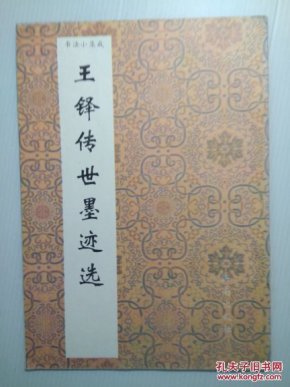 书法小集成
王铎传世墨迹选
孔夫子旧书网
www.kongfz.com